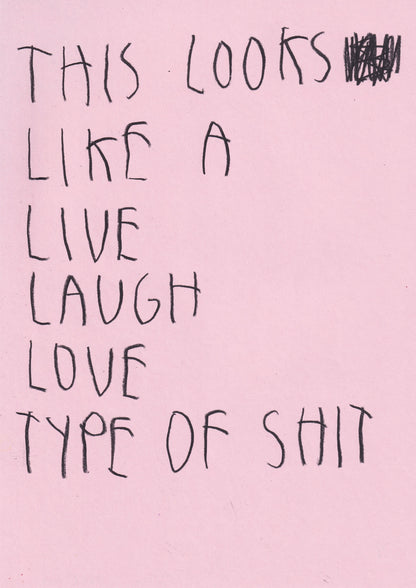 THIS LOOKS
LIKE A
LIVE
LAUGH
LOVE
TYPE OF SHIT